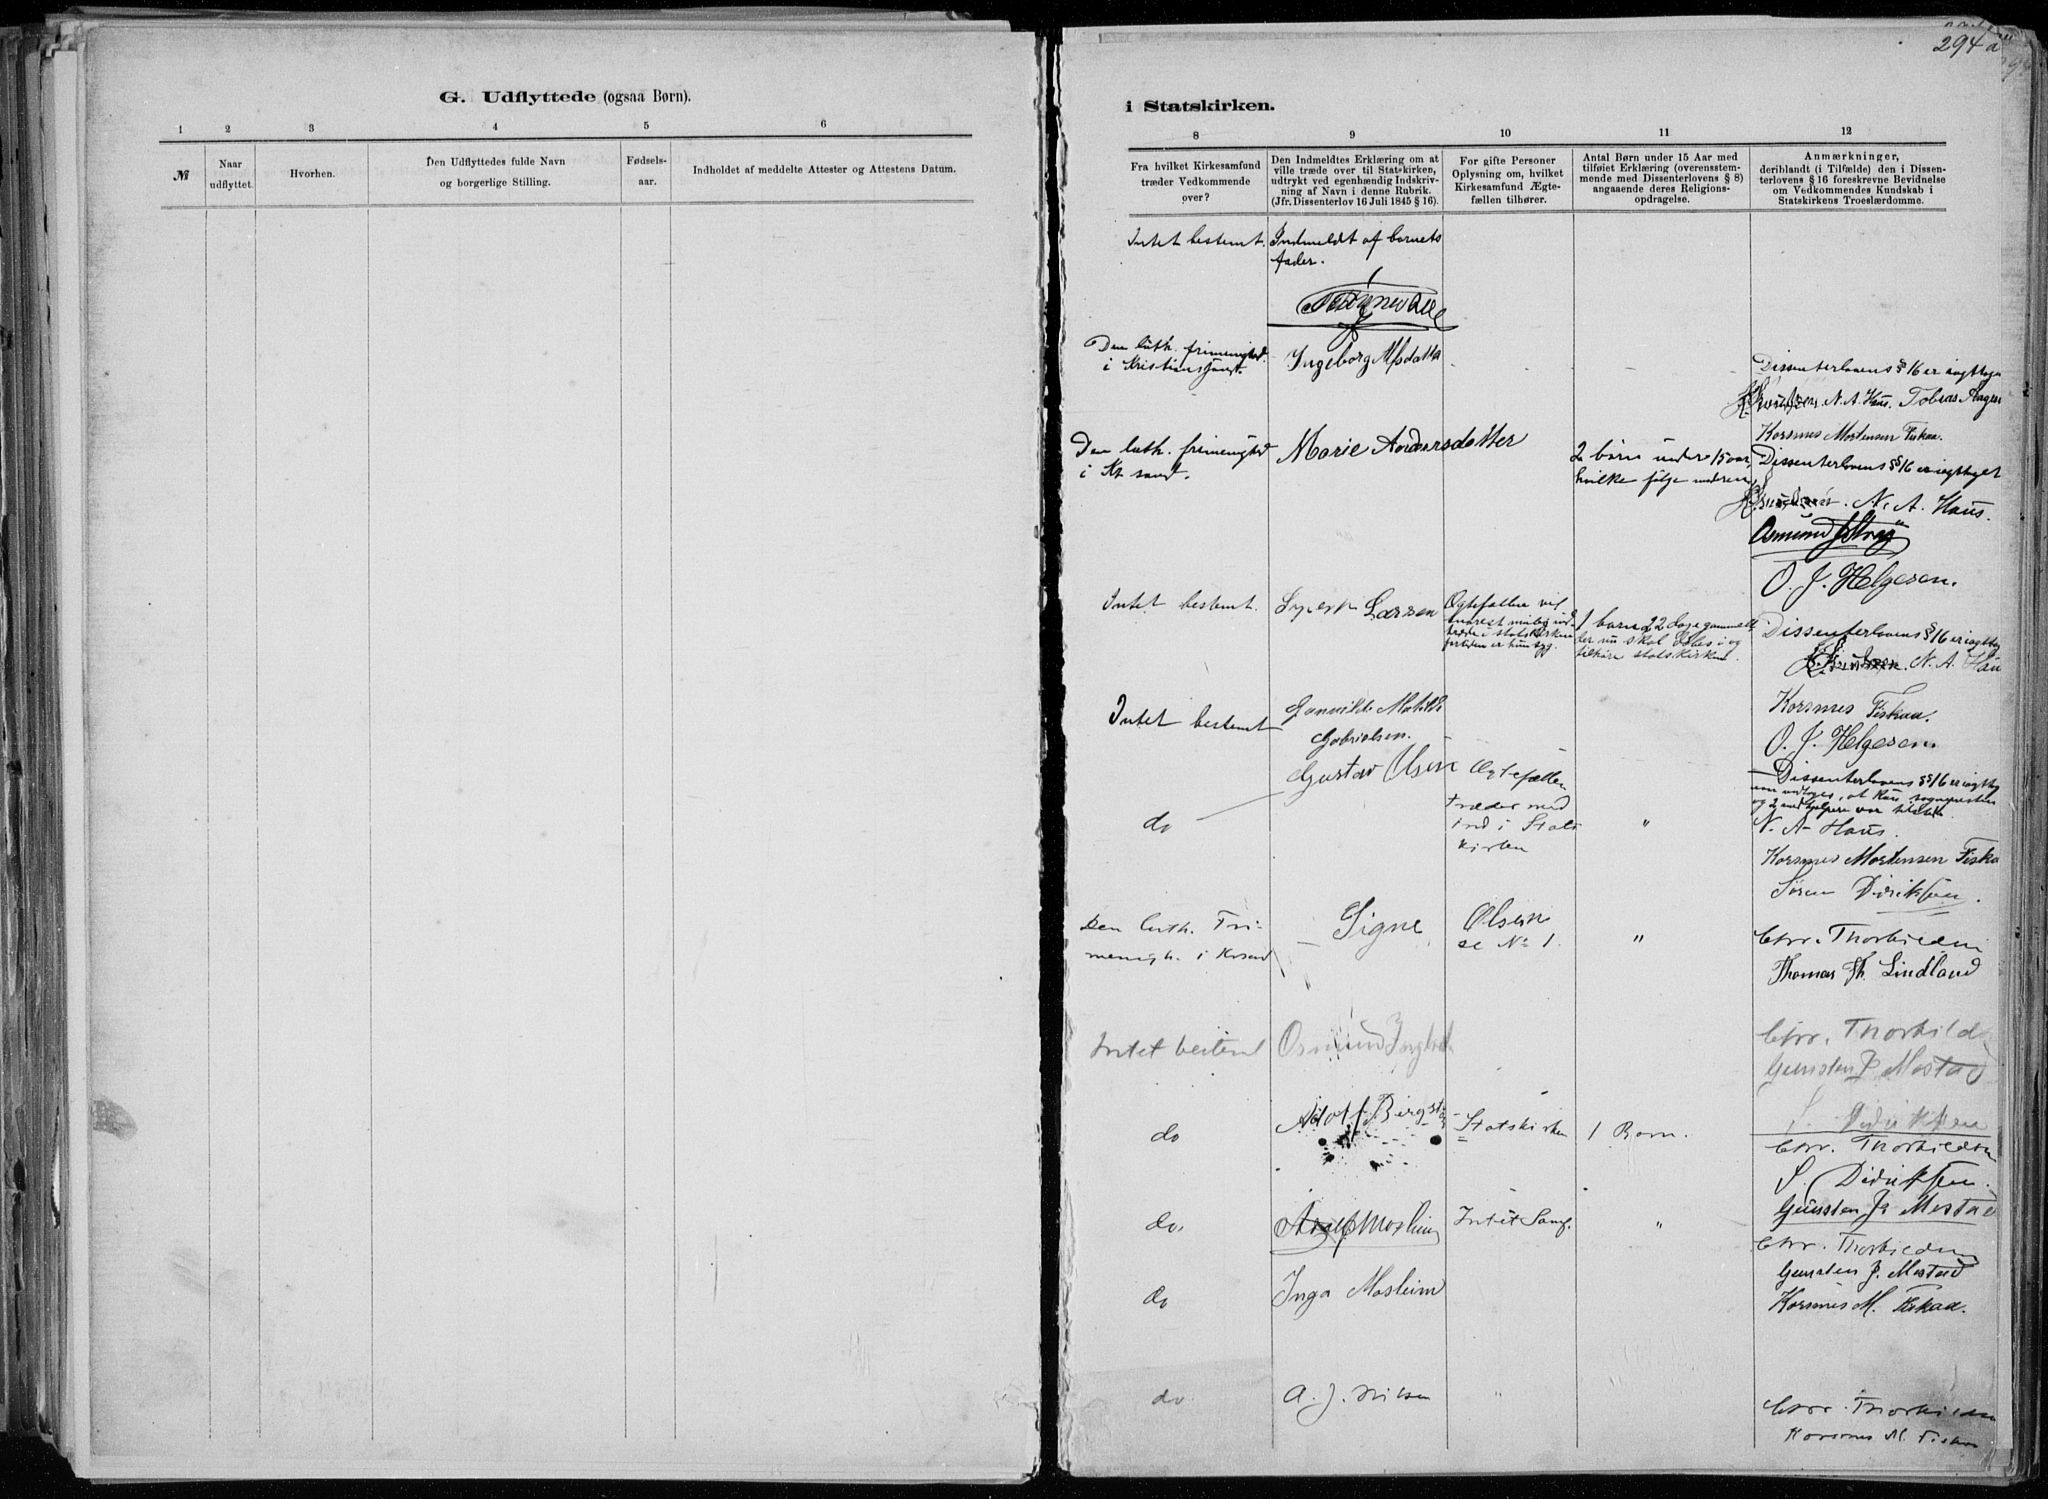 G. Udflyttede (ogsaa Børn).
1 2 3 4 5 6
№
Naar udflyttet.
Hvorhen.
Den Udflyttedes fulde Navn
og borgerlige Stilling.
Fødsels-
aar.
Indholdet af meddelte Attester og Attestens Datum.
294 a
i Statskirken.
8 9 10 11 12
Fra hvilket Kirkesamfund
træder Vedkommende
over?
Den Indmeldtes Erklæring om at
ville træde over til Statskirken,
udtrykt ved egenhændig Indskriv-
ning af Navn i denne Rubrik.
(Jfr. Dissenterlov 16 Juli 1845 § 16).
For gifte Personer
Oplysning om, hvilket
Kirkesamfund Ægte-
fællen tilhører.
Antal Børn under 15 Aar med
tilføiet Erklæring (overensstem-
mende med Dissenterlovens § 8)
angaaende deres Religions-
opdragelse.
Anmærkninger,
deriblandt (i Tilfælde) den i Dissen-
terlovens § 16 foreskrevne Bevidnelse
om Vedkommendes Kundskab i
Statskirkens Troeslærdomme.
Intet bestemt. Indmeldt af barnets
fader.
Den luth. frimenighed
i Kristianssand.
Ingeborg
Dissenterlovens §16 er iagttaget
N. A. Haus. Tobias
Korsmes Mortensen Fiskaa.
Den luth. frimenighed
i Kr. sand.
Marie Andersdatter
2 børn under 15 aar,
hvilke følge moderen
Dissenterlovens §16 er iagttaget
N. A. Haus.
Osmund
O. J. Helgesen.
Intet bestemt.
Larsen
Ægtefællen vil
snarest mulig ind-
træde i statskirken
for tiden er hun syg.
1 barn 22 dage gammelt
der nu skal døbes i og
tilhøre statskirken.
Dissenterlovens §16 er iagttag
N. A. Hau
Korsmes Fiskaa.
O. J. Helgesen
Intet bestemt
Gunvilde Matilde
Gabrielsen.
Dissenterlovens §16 er iagttag
do
Gustav Olsen
Ægtefællen
træder med
ind i Stats
kirken
"
N. A. Haus.
Korsmes Mortensen Fiska
Søren Didriksen.
Den luth. Fri-
menigh. i Krsand
Signe Olsen
se No 1.
"
Chr. Thorkildsen
Thomas Th. Lindland
Intet bestemt
Osmund
Chr. Thorkilds
Gunsten J. Mostad
S. Didriksen
do
Adolf Bergst
Statskirken
1 Barn.
Chr. Thorkildsen
S. Didriksen.
Gunsten J. Mostad
do.
Mosheim
Intet Samf.
"
Chr. Thorkildsen
Gunsten J. Mostad
do
Inga Mosheim
Korsmes M. Fiskaa.
do
A. J. Nilsen
"
Chr. Thorkildsen
Korsmes M. Fiskaa